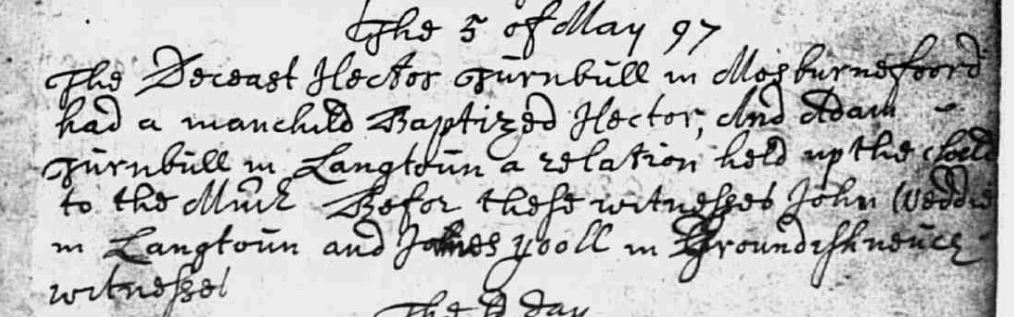 The 5 of May 97
The Deceast Hector Turnbull in Mosburnefoord
had a manchild Baptized Hector, And Adam
Turnbull in Langtoun a relation held up the child
to the Minr Befor these witnesses John Weddel
in Langtoun and James yooll in
witnesses
The day